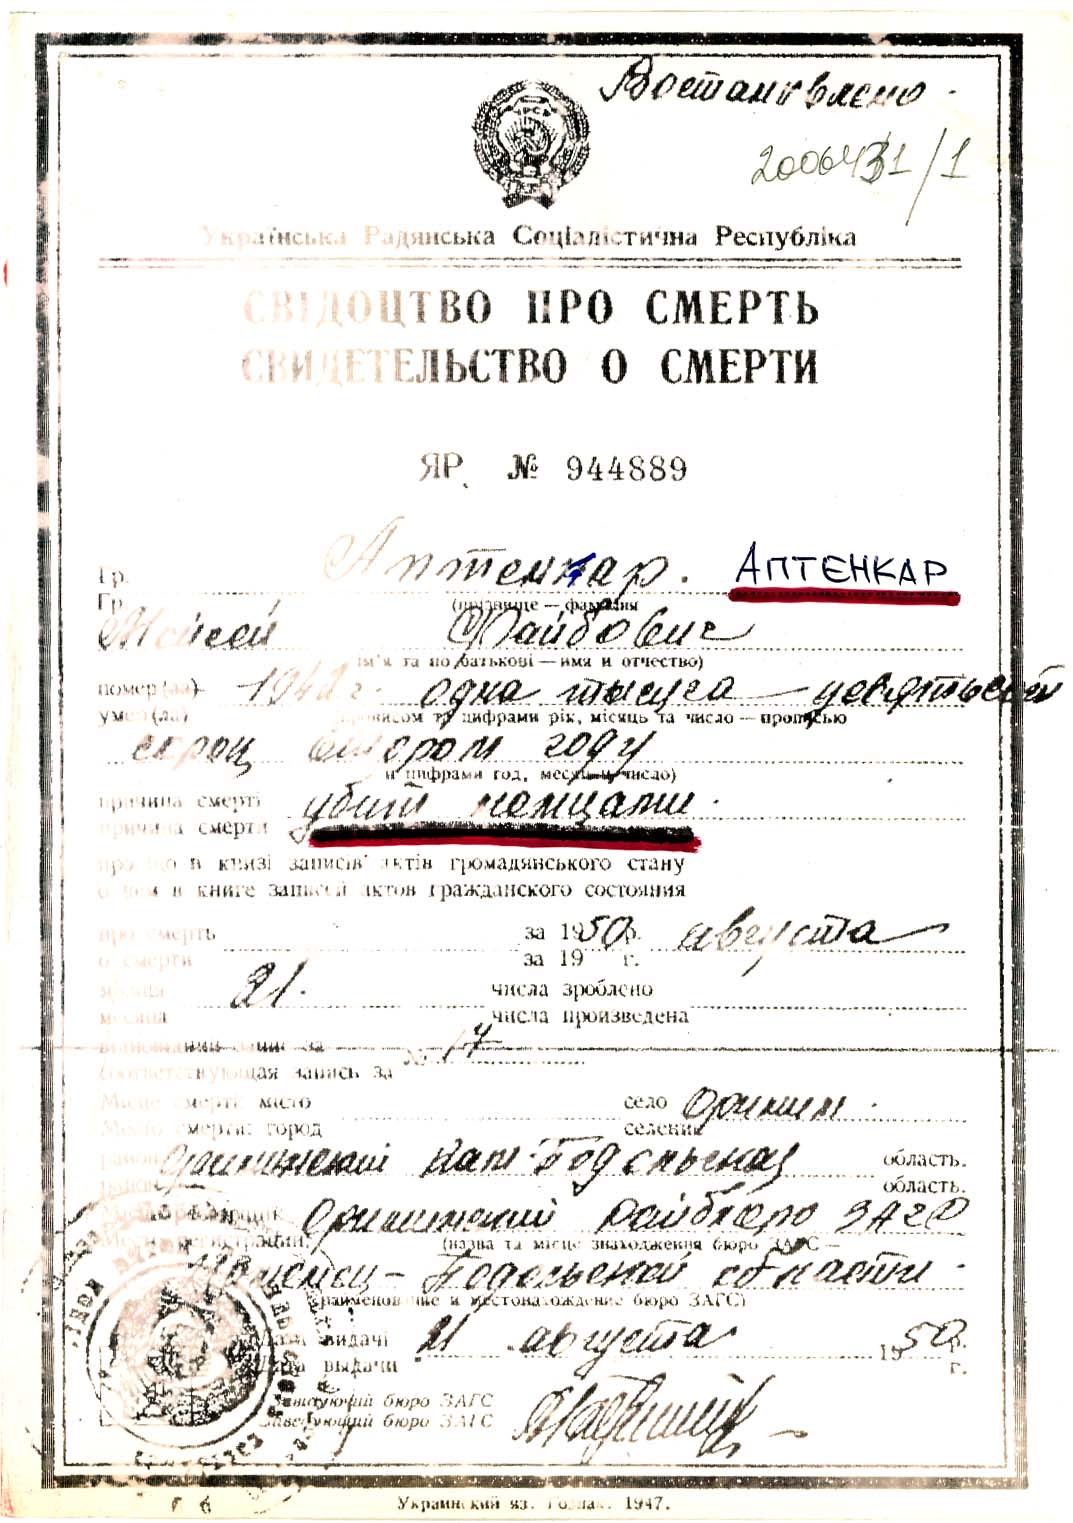 Востановлено.
2006431/1
Українська Радянська Соціалістична Республіка
СВІДОЦТВО ПРО СМЕРТЬ
СВИДЕТЕЛЬСТВО О СМЕРТИ
ЯР № 944889
Гр. Аптенкар. АПТЕНКАР
Гр.
(прізвище — фамилия
Мойсей Файбович
ім'я та по батькові — имя и отчество)
помер(ла) 1942 г. одна тысяча девятьсот
умер(ла) (прописом та цифрами рік, місяць та число — прописью
сорок втором году
и цифрами год, месяц и число)
причина смерті убит немцами.
причина смерти
про що в книзі записів актів громадянського стану
о чем в книге записей актов гражданского состояния
про смерть за 1950 р. августа
о смерти за 19 г.
місяця 21. числа зроблено
месяца числа произведена
відповідний запис за № 17
соответствующая запись за
Місце смерті: місто село Оринин.
Место смерти: город селение
район Орининский Кам-Подольская область.
район область.
Орининский Райбюро ЗАГС
Место регистрации (назва та місце знаходження бюро ЗАГС —
Каменец-Подольской области.
наименование и местонахождение бюро ЗАГС)
Дата видачі 21 августа 1950 р.
Дата выдачи г.
Завідуючий бюро ЗАГС
Заведующий бюро ЗАГС
Украинский яз. Гознак. 1947.